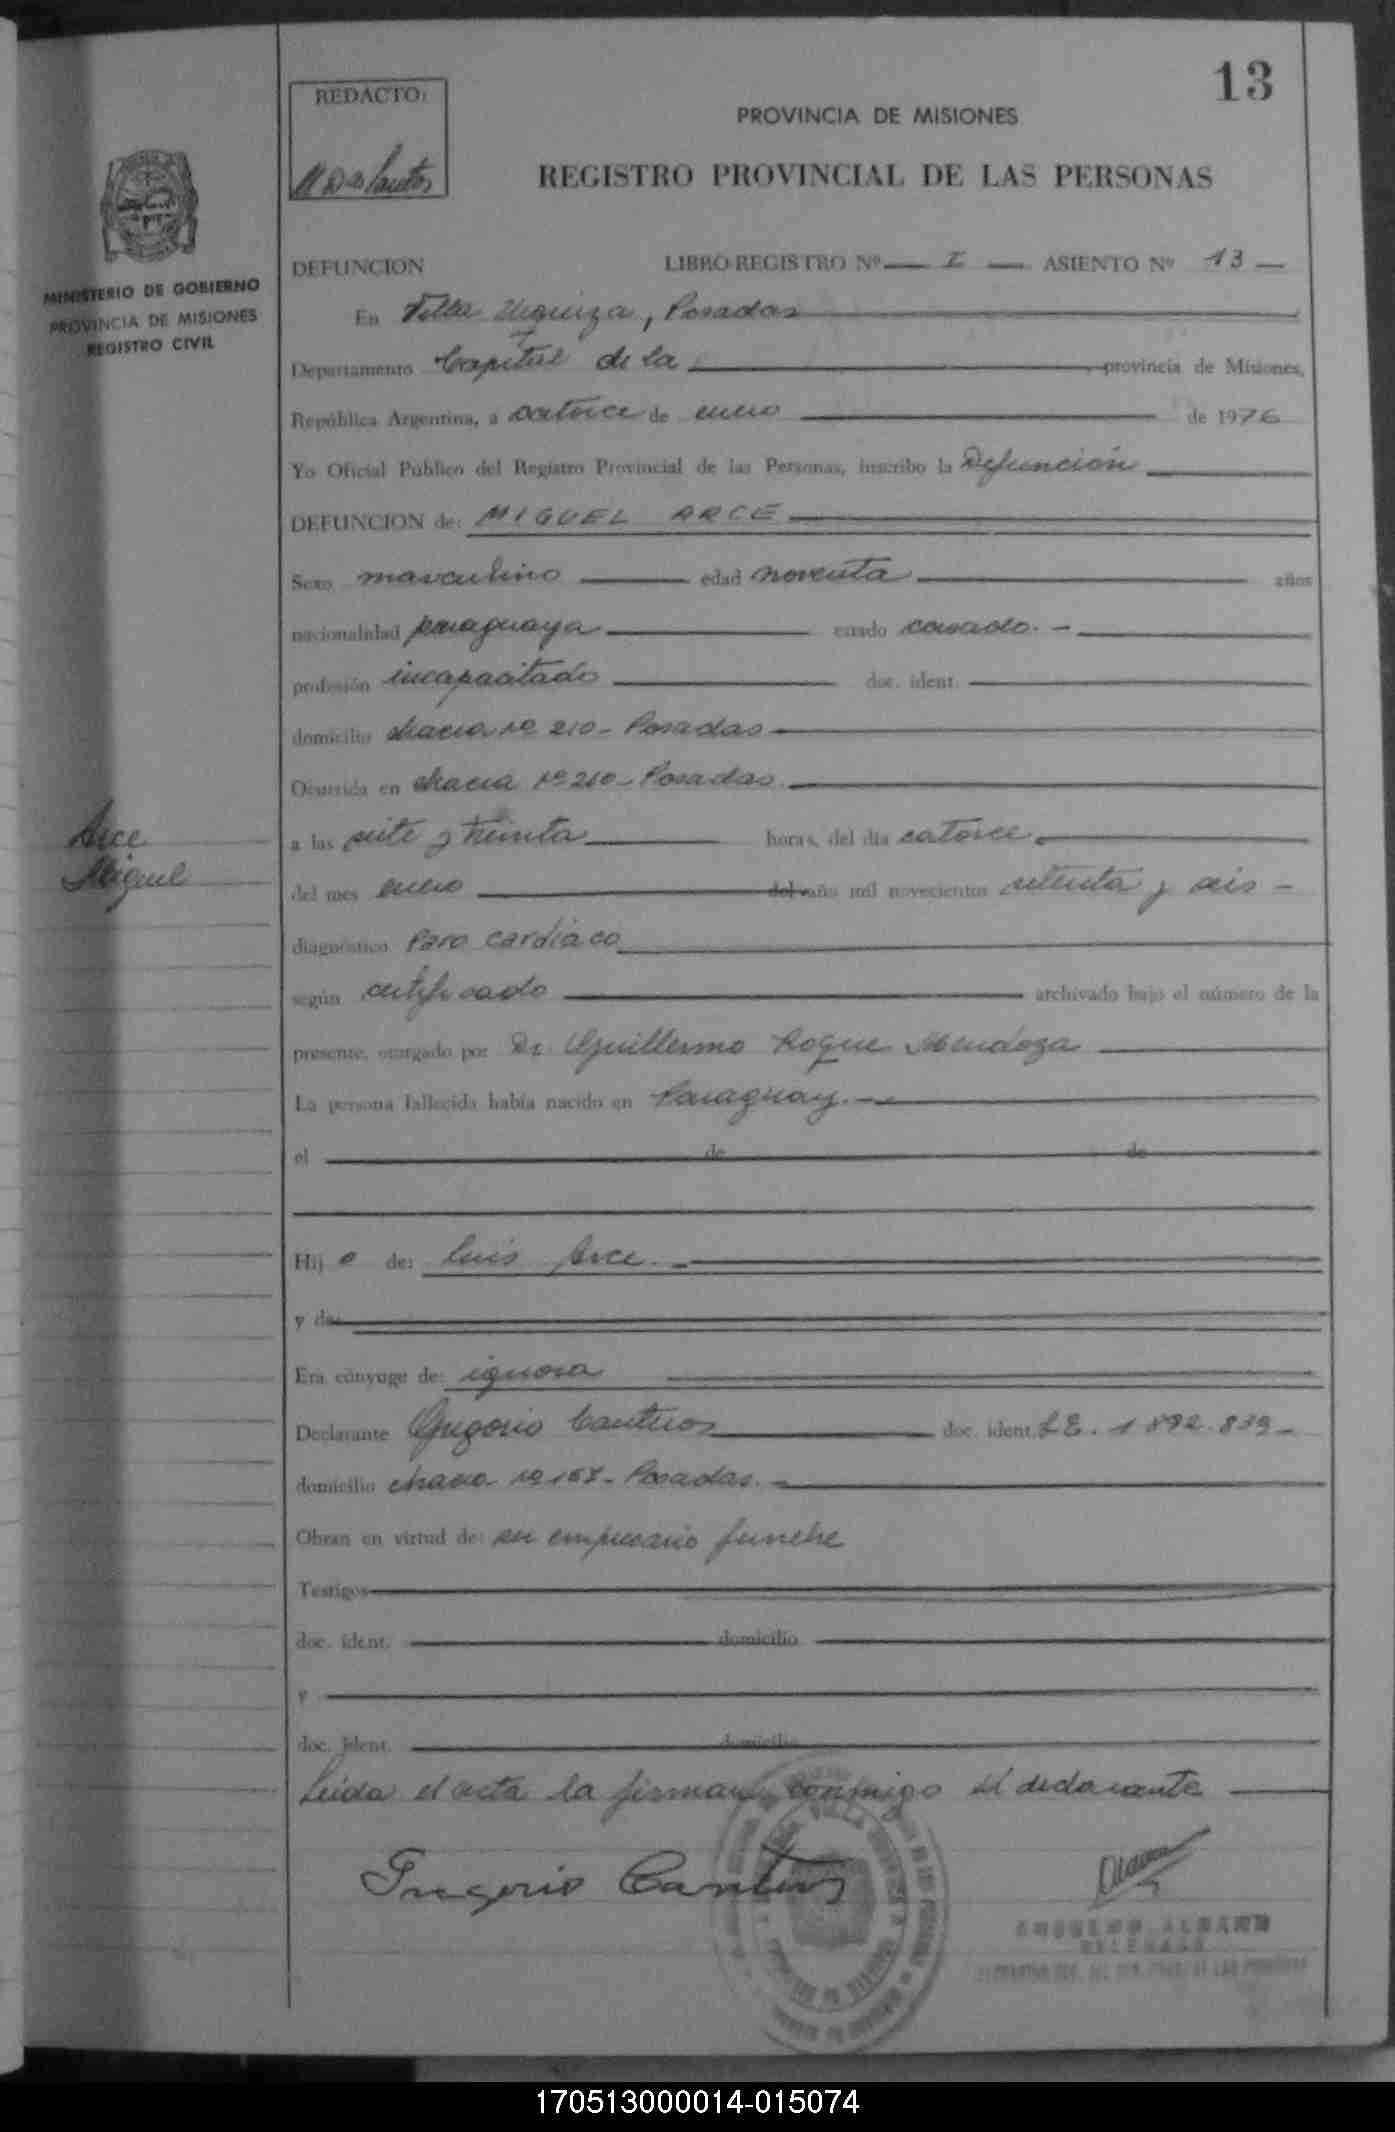 13
REDACTO:
PROVINCIA DE MISIONES
REGISTRO PROVINCIAL DE LAS PERSONAS
MINISTERIO DE GOBIERNO
PROVINCIA DE MISIONES
REGISTRO CIVIL
DEFUNCION LIBRO-REGISTRO Nº I ASIENTO Nº 13
En Villa Urquiza, Posadas
Departamento Capital de la provincia de Misiones,
República Argentina, a catorce de enero de 1976
Yo Oficial Público del Registro Provincial de las Personas, inscribo la Defunción
DEFUNCION de: MIGUEL ARCE
Sexo masculino edad noventa años
nacionalidad paraguaya estado casado.-
profesión incapacitado doc. ident.
domicilio chacra nº 210- Posadas
Ocurrida en chacra nº 210- Posadas
Arce
Miguel
a las siete y treinta horas, del día catorce
del mes enero del año mil novecientos setenta y seis -
diagnóstico Paro cardíaco
según certificado archivado bajo el número de la
presente, otorgado por Dr. Guillermo Roque Mendoza
La persona fallecida había nacido en Paraguay.-
el de de
Hij o de: Luis Arce.-
y de:
Era cónyuge de: ignora
Declarante Gregorio Canteros doc. ident. L.E. 1 892.839-
domicilio chacra nº 157- Posadas.-
Obran en virtud de: ser empresario funebre
Testigos
doc. ident. domicilio
y
doc. ident. domicilio
Leida el acta la firman conmigo el declarante
Gregorio Canteros
DELEGADO
170513000014-015074